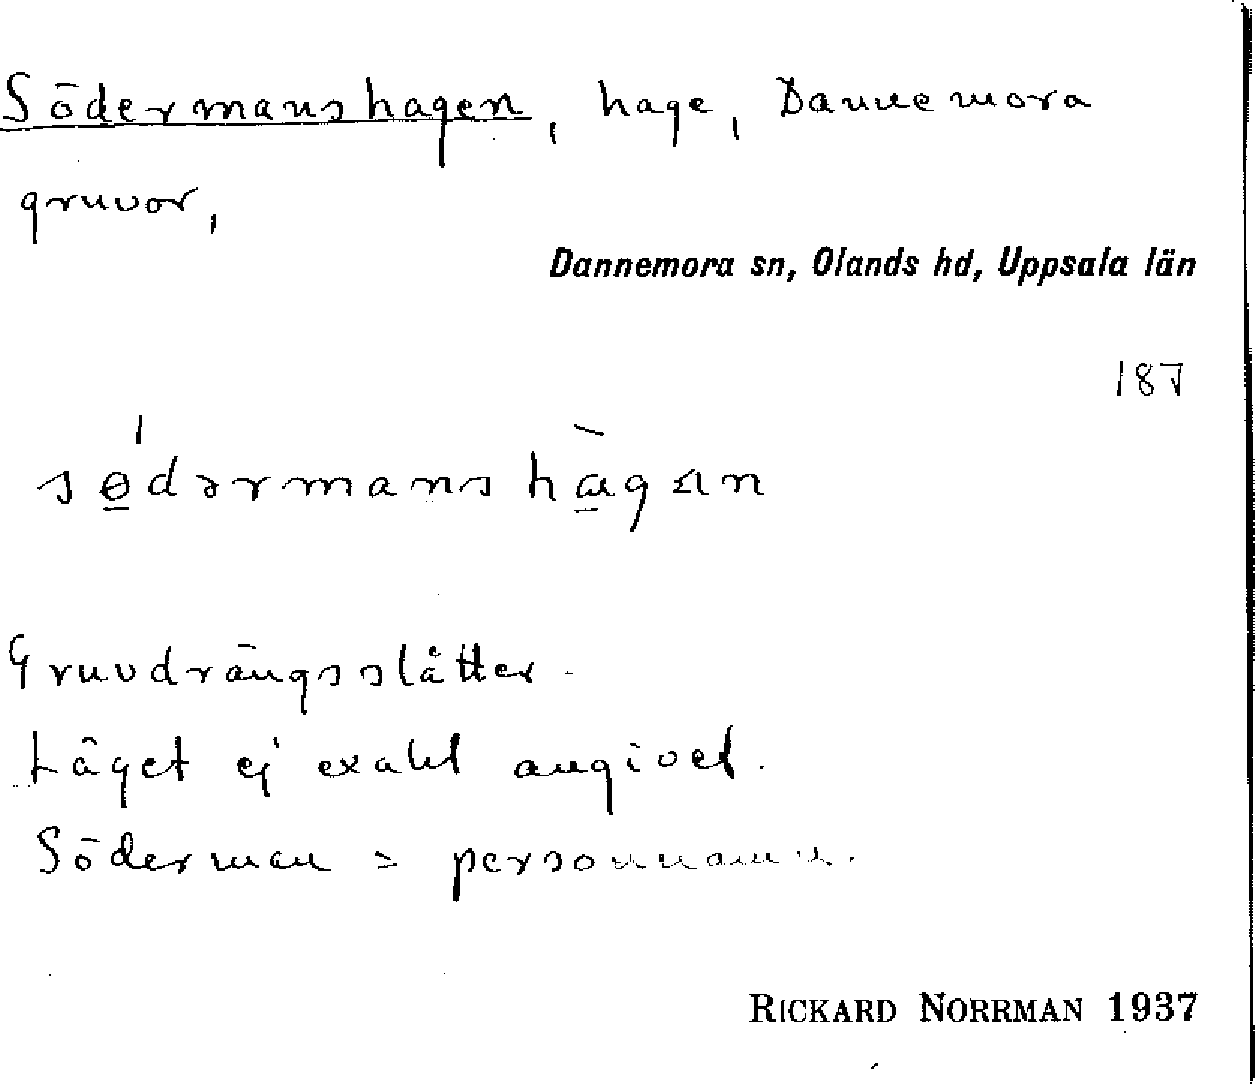 Södermanshagen, hage, Dannemora
gruvor,
Dannemora sn, Olands hd, Uppsala län
187
sødərmanshagan
Gruvdrängsslåtter.
Läget ej exakt angivet.
Söderman = personnamn.
RICKARD NORRMAN 1937